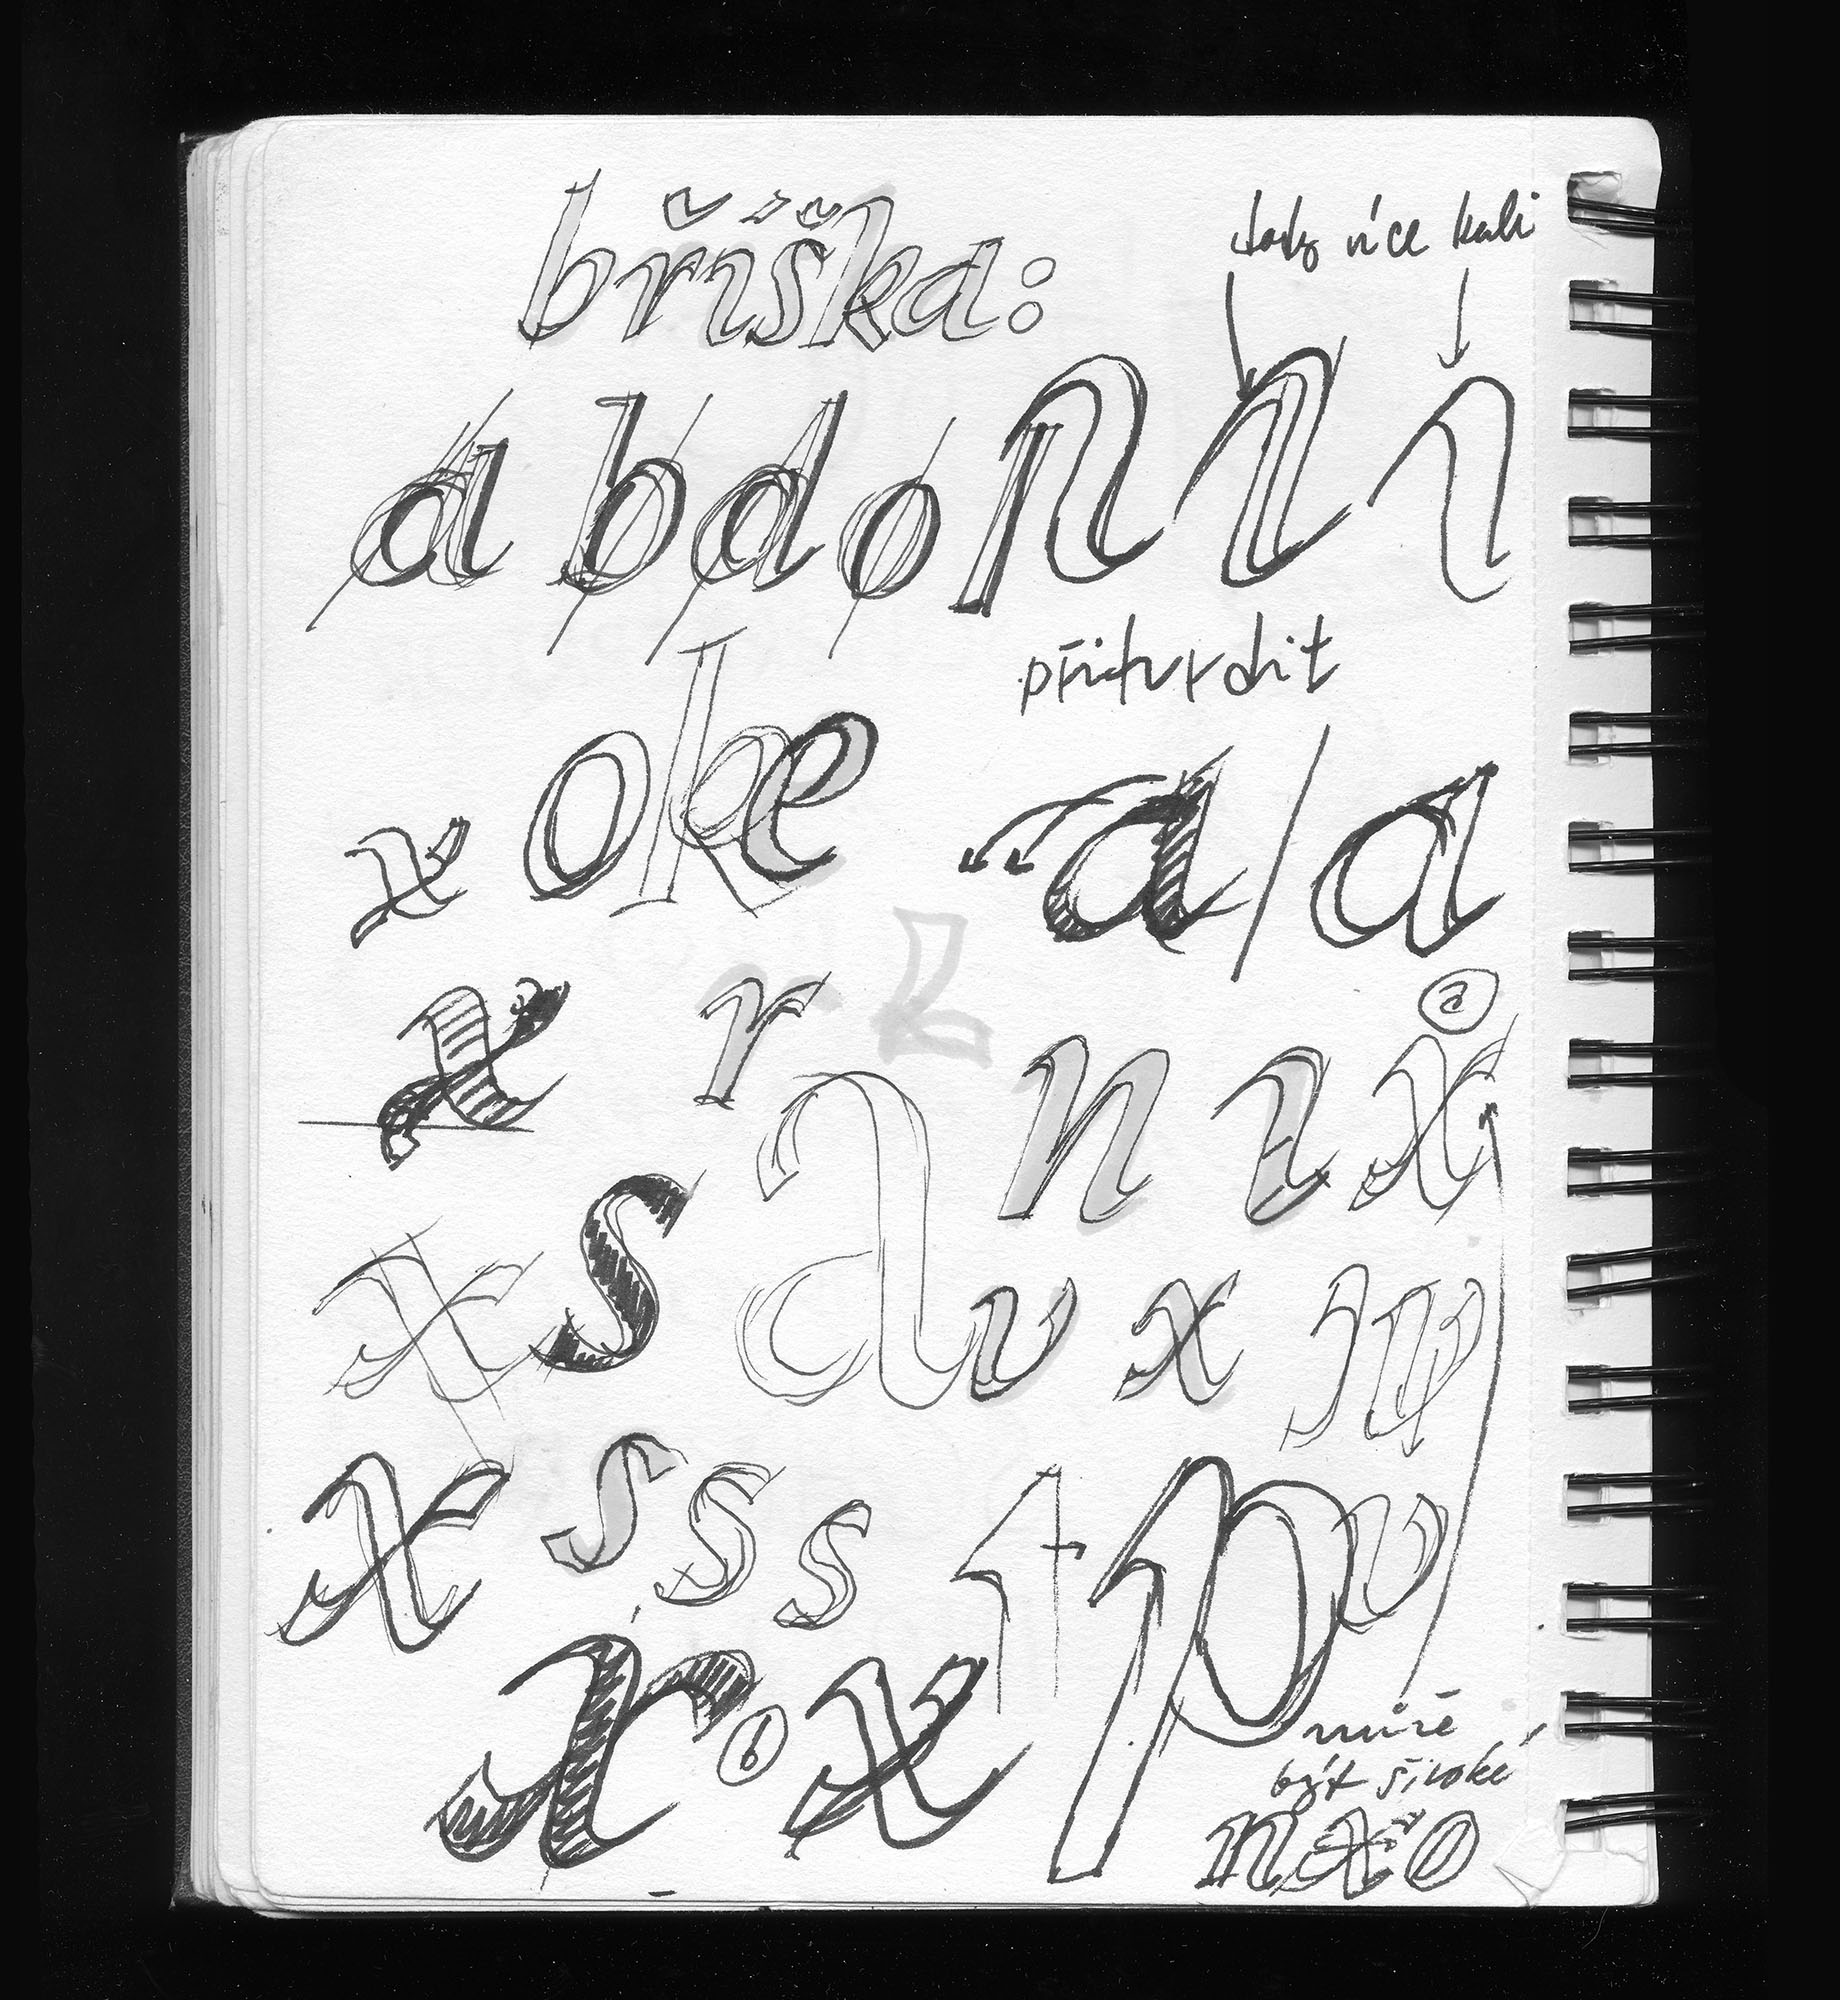 bříška:
tady více kali
a b d o n i i
přitvrdit
x o k e
a / a
x r z
n i x a
x s a v x j w
x s s s t p v
x b x
může
být široké
n x o